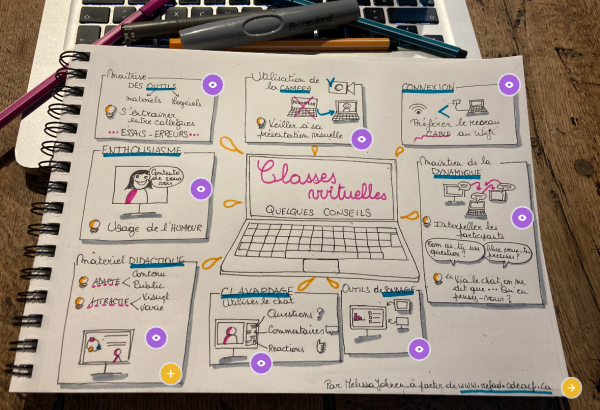 Maîtrise
DES OUTILS
matériels logiciels
S'entrainer
entre collègues
••• ESSAIS-ERREURS •••
Utilisation de
la CAMÉRA
Veiller à sa
présentation visuelle
CONNEXION
Préférer le réseau
CABLÉ au Wifi
ENTHOUSIASME
Contente
de vous
voir
Usage de l'HUMOUR
Classes
virtuelles
QUELQUES CONSEILS
Maintien de la
DYNAMIQUE
Interpeller les
participants
"Via le chat, on me
dit que ... Qu'en
pensez-vous ?
Matériel DIDACTIQUE
ADAPTÉ
Contenu
Public
ATTRACTIF
Visuel
Varié
CLAVARDAGE
Utiliser le chat
Questions
Commentaires
Réactions
Par Melissa Johnen, à partir de www.refad-cdeacf.ca